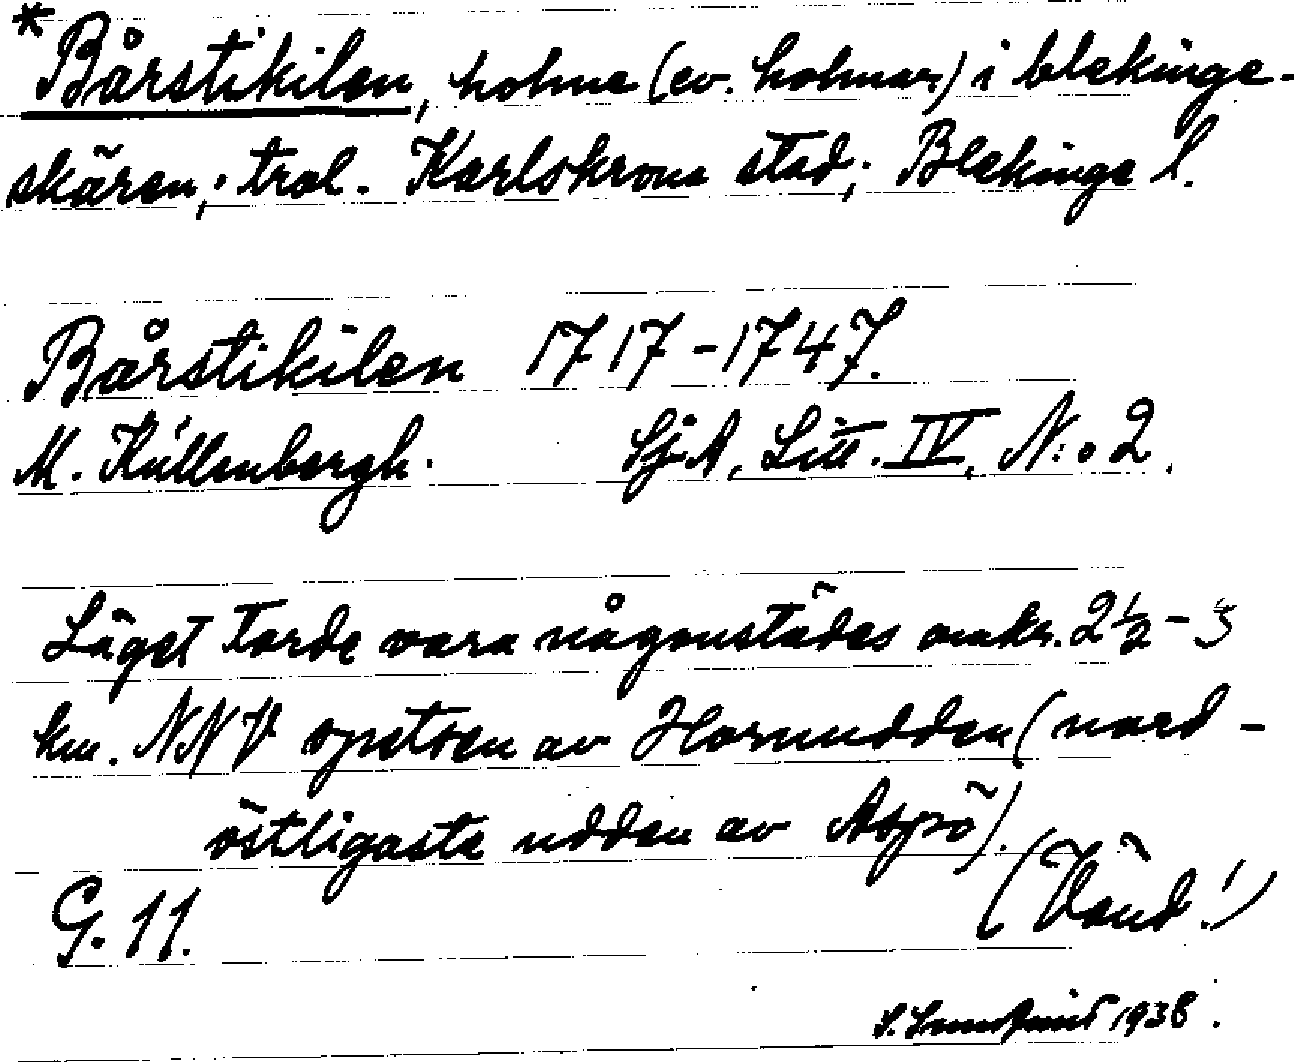 *Bårstikilen, holme (ev. holmar) i blekinge-
skären; trol. Karlskrona stad; Blekinge l.
Bårstikilen 1717-1747.
M. Küllenbergh. SjA, Litt. IV, N:o 2.
Läget torde vara någonstädes omkr. 2½-3
km. NNV spetsen av Hornudden (nord-
östligaste udden av Aspö).
(Vänd!)
G. 11.
1938.